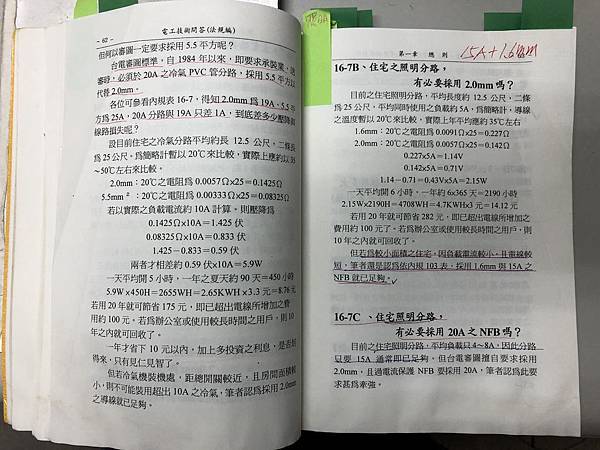 - 62 -
電工技術問答(法規編)
但何以審圖一定要求採用 5.5 平方呢？
台電審圖標準，自 1984 年以來，即要求承裝業，送
審時，必須於 20A 之冷氣 PVC 管分路，採用 5.5 平方以
代替 2.0mm。
各位可參看內規表 16-7，得知 2.0mm 爲 19A，5.5 平
方爲 25A，20A 分路與 19A 只差 1A，到底差多少壓降和
線路損失呢？
設目前住宅之冷氣分路平均約長 12.5 公尺，二條
爲 25 公尺，爲簡略計暫以 20℃來比較，實際上應約以 35
~50℃左右來比較。
2.0mm：20℃之電阻爲 0.0057Ωx25＝0.1425Ω
5.5mm²：20℃之電阻爲 0.00333Ωx25＝0.08325Ω
若以實際之負載電流約 10A 計算。則壓降爲
0.1425Ωx10A＝1.425 伏
0.08325Ωx10A＝0.833 伏
1.425－0.833＝0.59 伏
兩者才相差約 0.59 伏x10A＝5.9W
一天平均開 5 小時，一年之夏天約 90 天＝450 小時
5.9W×450H＝2655WH＝2.65KWH×3.3 元＝8.76 元
若用 20 年就可節省 175 元，即已超出電線所增加之費
用約 100 元。若爲辦公室或使用較長時間之用戶，則 10
年之內就可回收了。
一年才省下 10 元以內，加上多投資之利息，是否划
得來，只有見仁見智了。
但若冷氣機裝機處，距總開關較近，且房間面積較
小，則不可能裝用超出 10A 之冷氣，筆者認爲採用 2.0mm
之導線就已足夠。
第一章 總 則
15A+1.6mm
16-7B、住宅之照明分路，
有必要採用 2.0mm 嗎？
目前之住宅照明分路，平均長度約 12.5 公尺，二條
爲 25 公尺，平均同時使用之負載約 5A，爲簡略計，導線
之溫度暫以 20℃來比較，實際上年平均應約 35℃左右
1.6mm：20℃之電阻爲 0.0091Ωx25＝0.227Ω
2.0mm：20℃之電阻爲 0.0057Ωx25＝0.142Ω
0.227x5A＝1.14V
0.142x5A＝0.71V
1.14－0.71＝0.43Vx5A＝2.15W
一天平均開 6 小時，一年約 6x365 天＝2190 小時
2.15Wx2190H＝4708WH＝4.7KWHx3 元＝14.12 元
若用 20 年就可節省 282 元，即已超出電線所增加之
費用約 100 元了。若爲辦公室或使用較長時間之用戶，則
10 年之內就可回收了。
但若較小面積之住宅，因負載電流較小，且電線較
短，筆者還是認爲依內規 103 表，採用 1.6mm 與 15A 之
NFB 就已足夠。
16-7C、住宅照明分路，
有必要採用 20A 之 NFB 嗎？
目前之住宅照明分路，平均負載只 4~8A，因此分路
只要 15A 通常即已足夠。但台電審圖擅自要求採用
2.0mm，且過電流保護 NFB 要採用 20A，筆者認爲此要
求甚爲牽強。